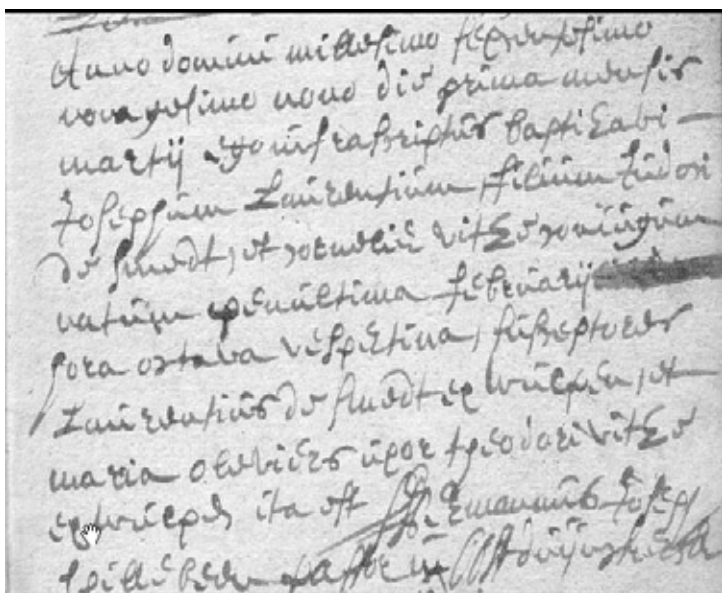 Anno domini millesimo septuagesimo
nonagesimo nono die prima mensis
martij ego infrascriptus baptizavi
Josephum Laurentium, filium Judoci
de smedt, et corneliae vitse coniugum
natum penultima februarij
hora octava vespertina, susceptores
Laurentius de smedt ex wulpen, et
maria oleviers uxor theodori vitse
ex wulpen ita est Hermannus Joseph
pastor in